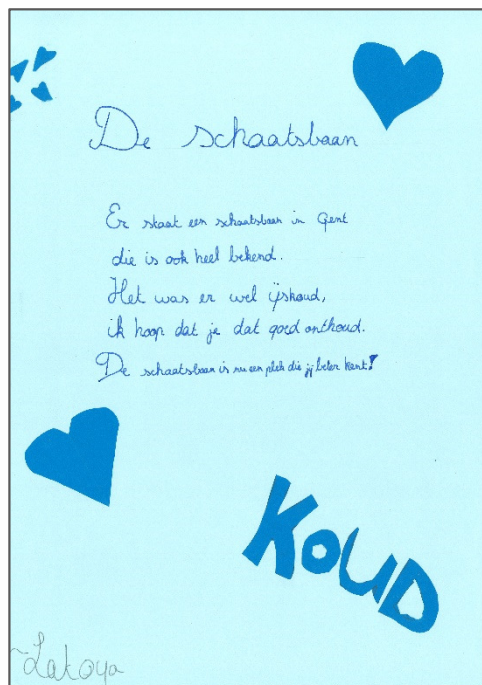 De schaatsbaan
Er staat een schaatsbaan in Gent
die is ook heel bekend.
Het was er wel ijskoud,
ik hoop dat je dat goed onthoud.
De schaatsbaan is nu een plek die jij beter kent!
KOUD
~Latoya